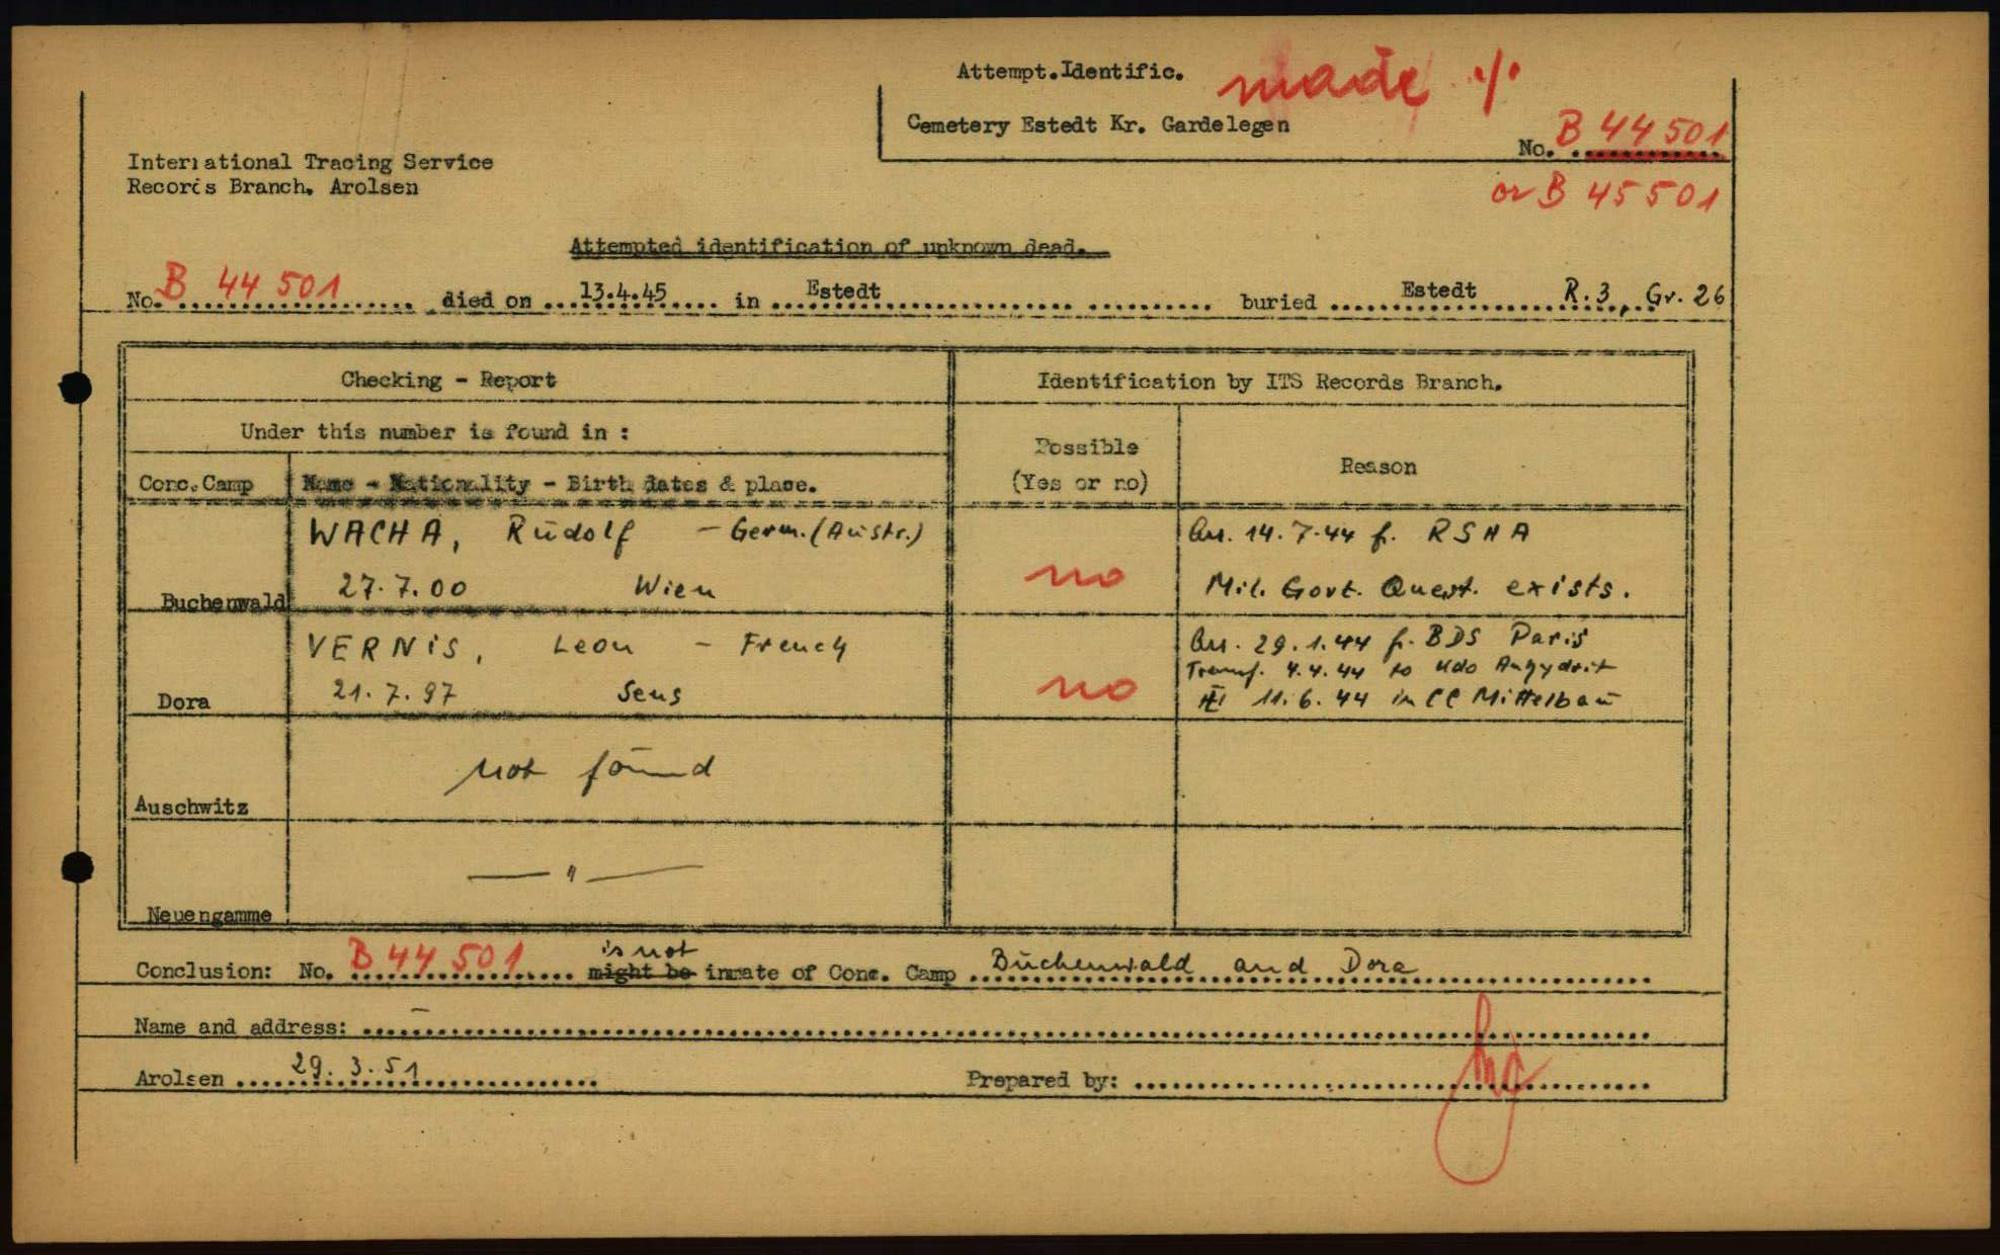 Attempt.Identific. made ./.
Cemetery Estedt Kr. Gardelegen
No. B 44 501
or B 45501
International Tracing Service
Records Branch, Arolsen
Attempted identification of unknown dead.
No. B 44 501 died on 13.4.45 in Estedt buried Estedt R.3, Gr. 26
Checking - Report
Identification by ITS Records Branch.
Under this number is found in :
Possible
(Yes or no)
Reason
Conc.Camp
Name - Nationality - Birth dates & place.
WACHA, Rudolf - Germ.(Austr.)
27.7.00 Wien
Buchenwald
no
Arr. 14.7.44 f. RSHA
Mil. Govt. Quest. exists.
VERNIS, Leon - French
21.7.97 Sens
Dora
no
Arr. 29.1.44 f. BDS Paris
Transf. 4.4.44 to Kdo Anhydrit
11.6.44 in CC Mittelbau
not found
Auschwitz
— " —
Neuengamme
is not
Conclusion: No. B 44 501 might be inmate of Conc. Camp Buchenwald and Dora
Name and address: -
Arolsen 29. 3. 51
Prepared by: